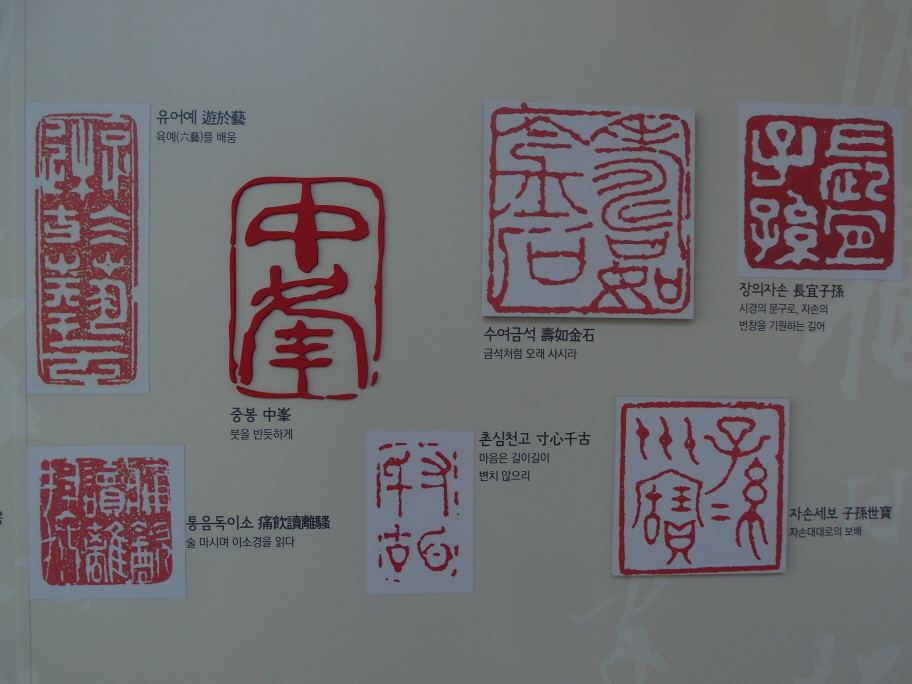 유어예 遊於藝
육예(六藝)를 배움
中
峯
중봉 中峯
붓을 반듯하게
壽如
金石
수여금석 壽如金石
금석처럼 오래 사시라
長宜
子孫
장의자손 長宜子孫
시경의 문구로, 자손의
번창을 기원하는 길어
痛飮
讀離
騷
통음독이소 痛飮讀離騷
술 마시며 이소경을 읽다
촌심천고 寸心千古
마음은 길이길이
변치 않으리
子孫
世寶
자손세보 子孫世寶
자손대대로의 보배